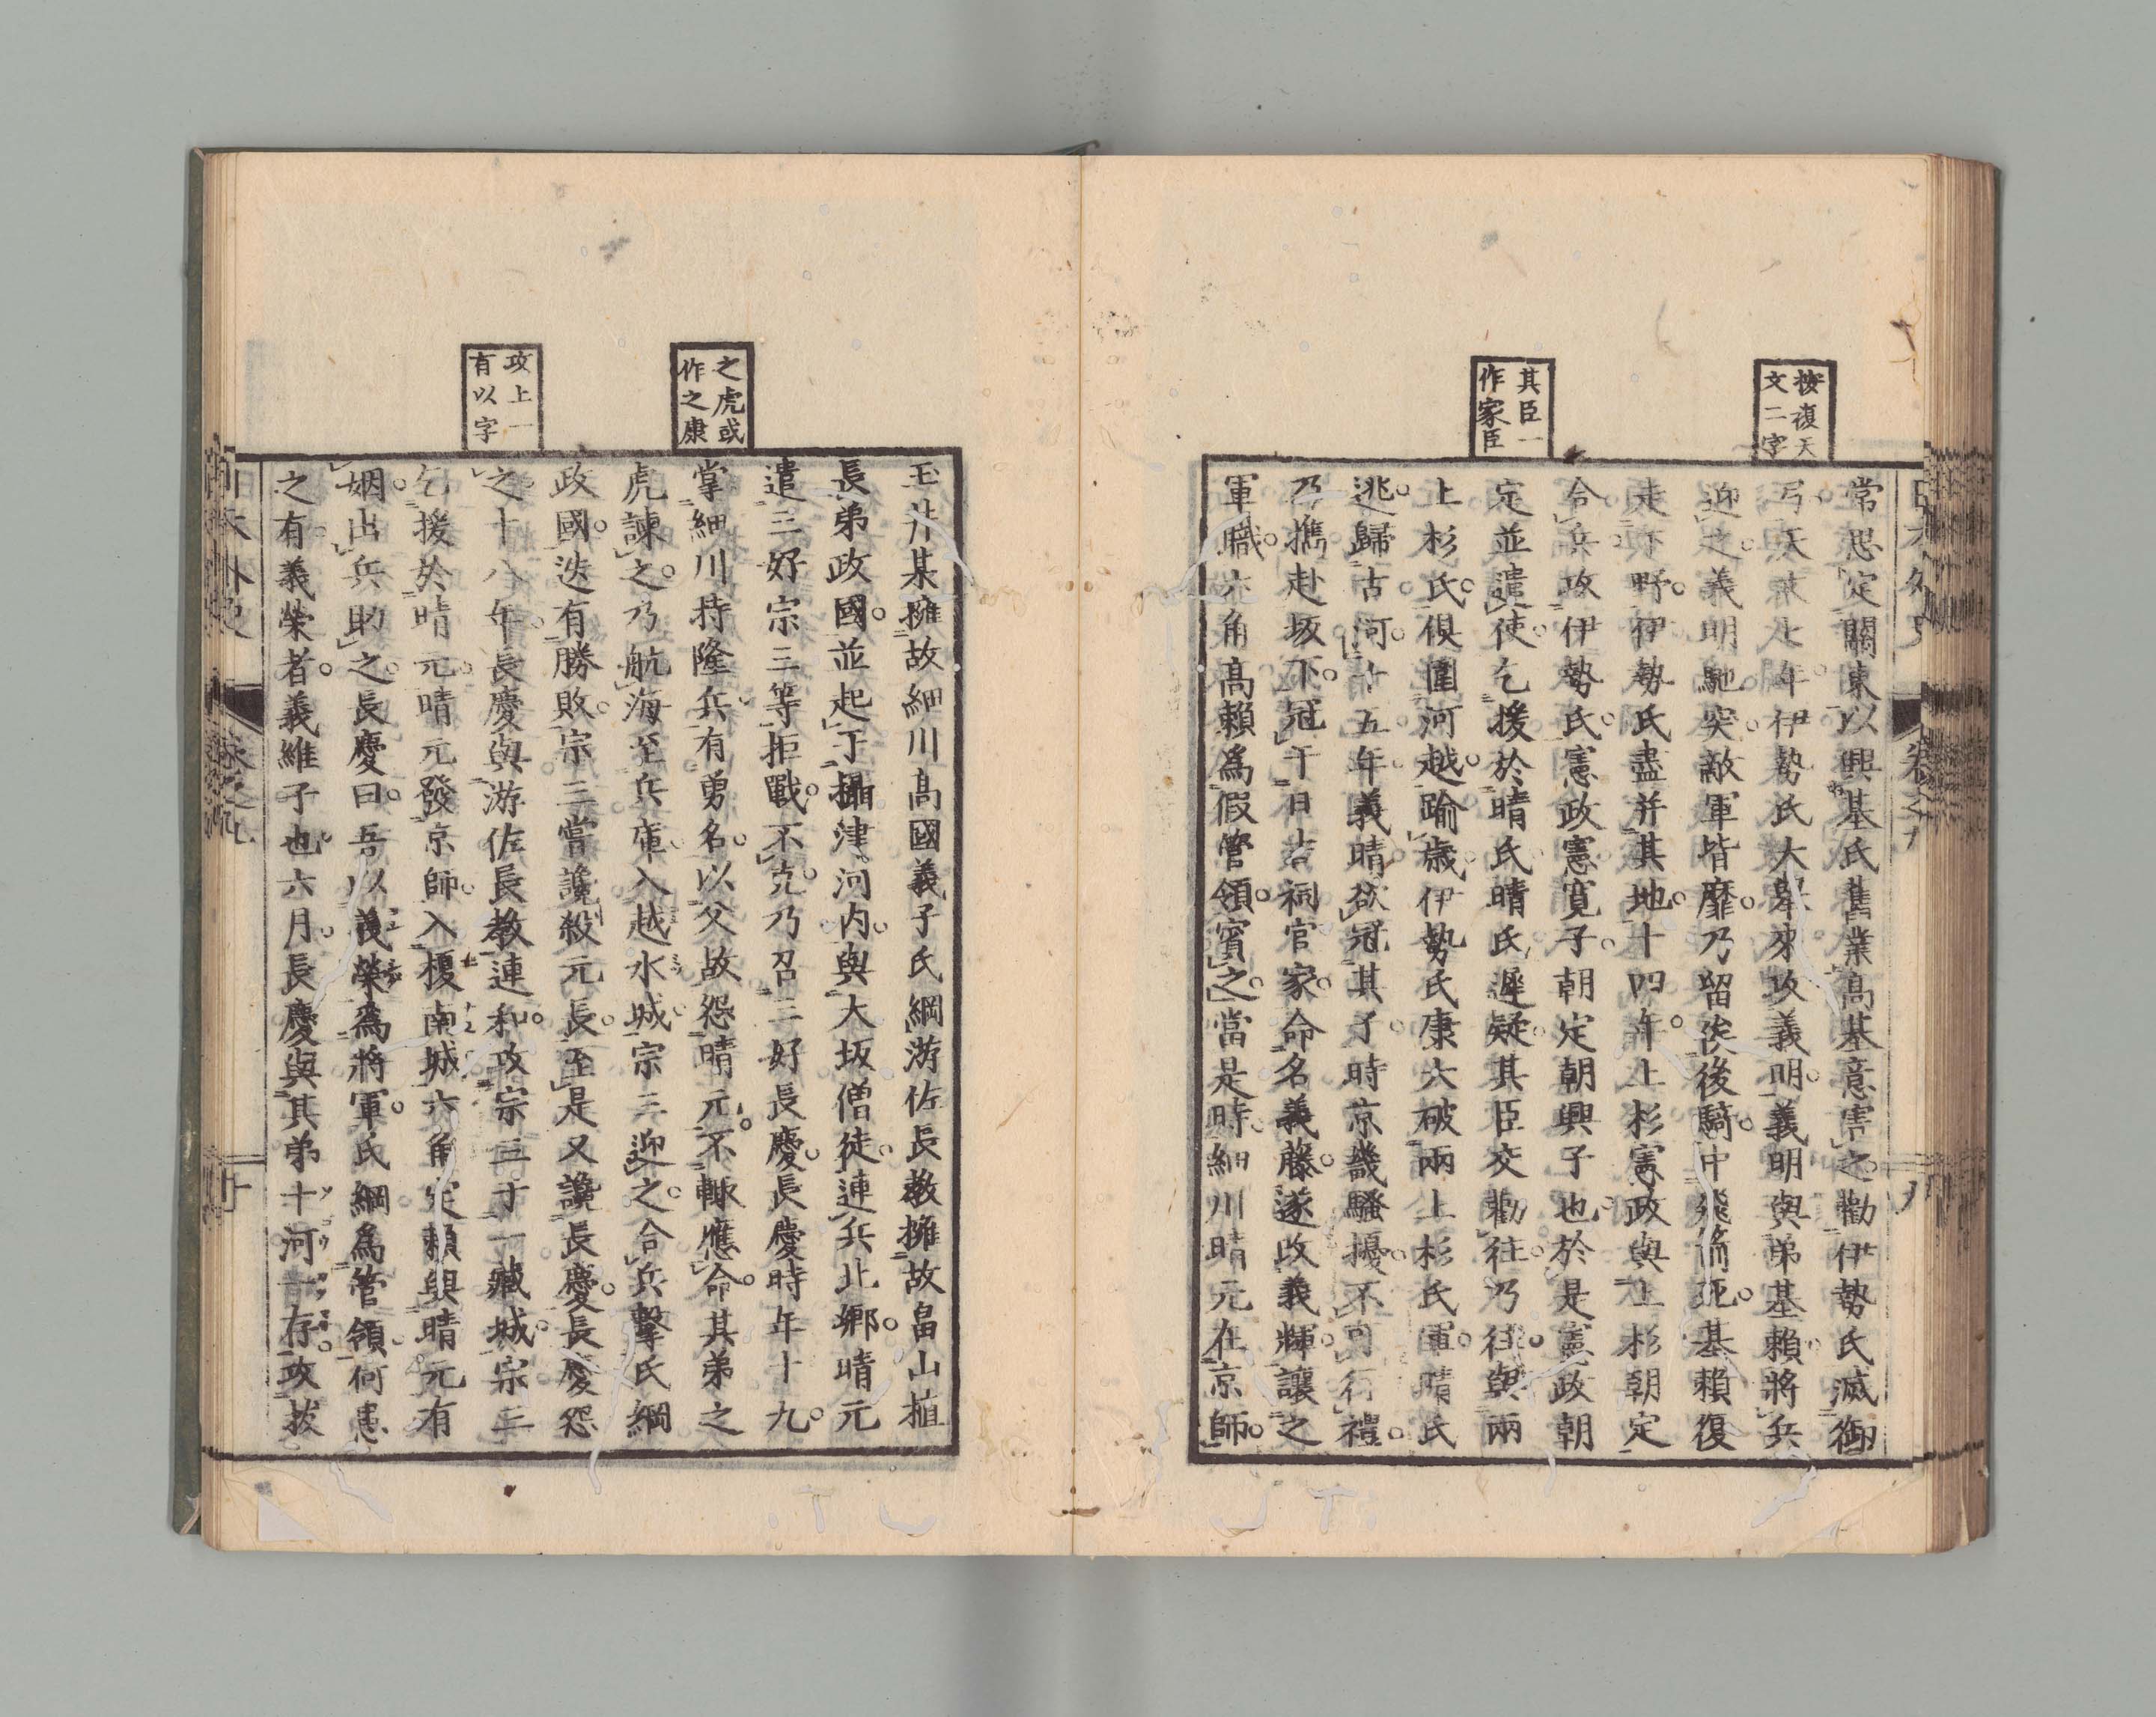 按復天
文二字
其臣一
作家臣
常思定關東以興基氏舊業高基意害之勸伊勢氏滅御
弓天文七年伊勢氏大舉來攻義明義明與弟基賴將兵
迎之義明馳突敵軍皆靡乃留俟後騎中飛箭死基賴復
走下野伊勢氏盡并其地十四年上杉憲政與上杉朝定
合兵攻伊勢氏憲政憲寬子朝定朝興子也於是憲政朝
定並遣使乞援於晴氏晴氏遲疑其臣交勸往乃往與兩
上杉氏俱圍河越踰歲伊勢氏康大破兩上杉氏軍晴氏
逃歸古河十五年義晴欲冠其子時京畿騷擾不可行禮
乃攜赴坂下冠于日吉祠官家命名義藤遂改義輝讓之
軍職六角高賴為假管領賓之當是時細川晴元在京師
之虎或
作之康
攻上一
有以字
玉井某擁故細川高國義子氏綱游佐長教擁故畠山植
長弟政國並起于攝津河内與大坂僧徒連兵北鄉晴元
遣三好宗三等拒戰不克乃召三好長慶長慶時年十九
掌細川持隆兵有勇名以父故怨晴元不輒應命其弟之
虎諫之乃航海至兵庫入越水城宗三迎之合兵擊氏綱
政國迭有勝敗宗三嘗讒殺元長至是又讒長慶長慶怨
之十八年長慶與游佐長教連和攻宗三于一藏城宗三
乞援於晴元晴元發京師入榎南城六角定賴與晴元有
姻出兵助之長慶曰吾以義榮為將軍氏綱為管領何患
之有義榮者義維子也六月長慶與其弟十河一存攻拔